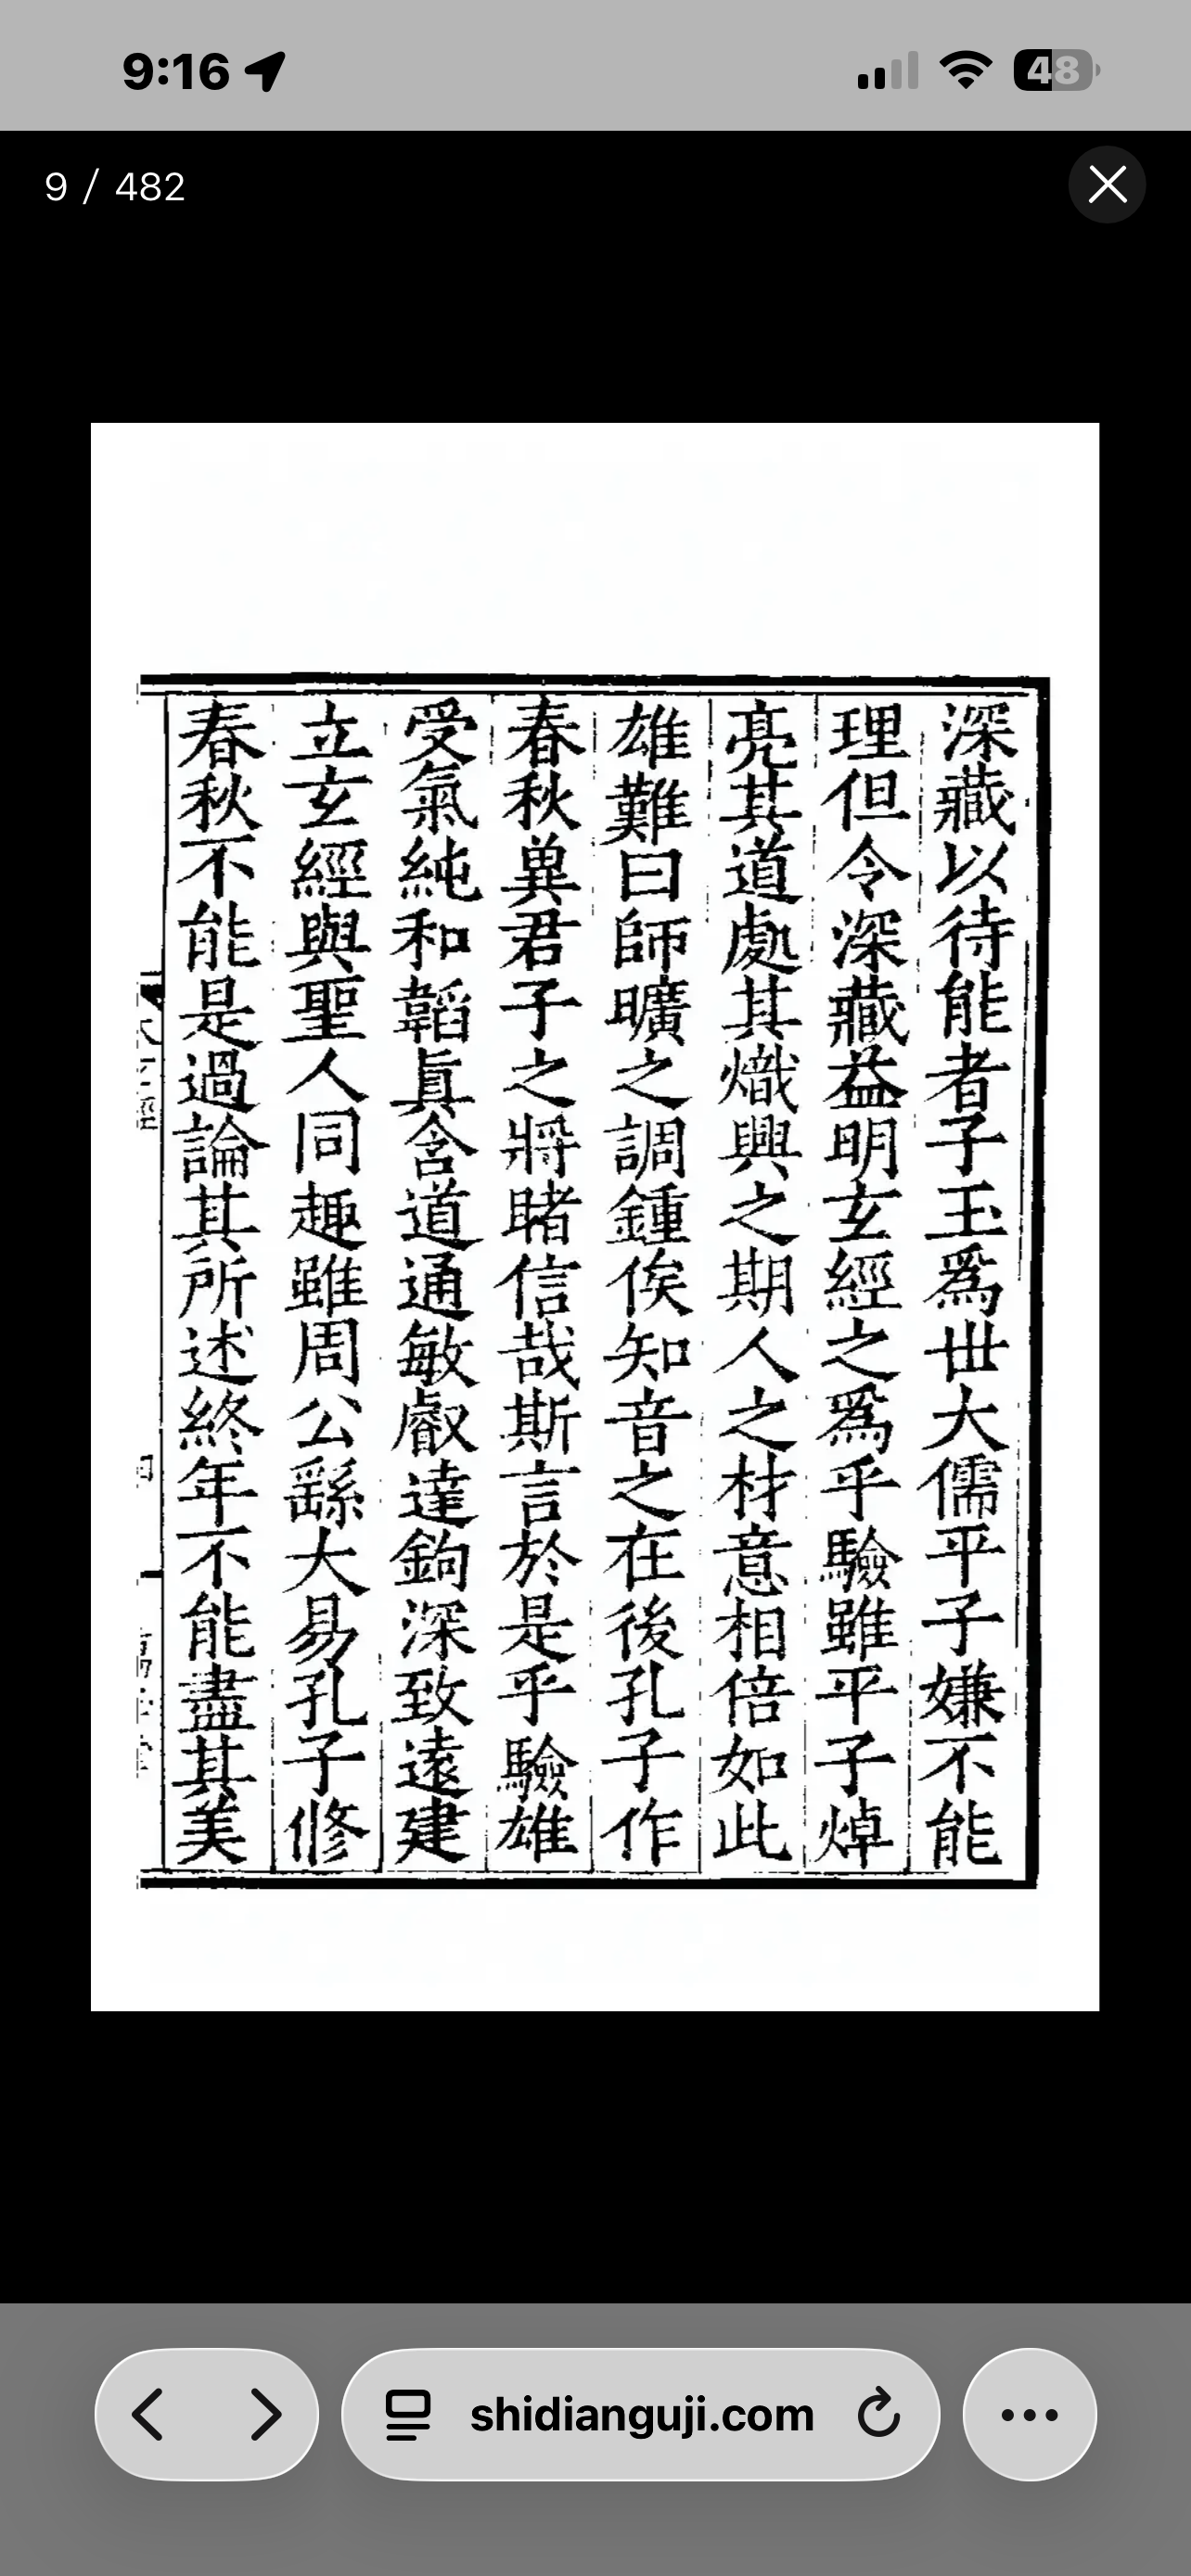 9:16
48
9 / 482
深藏以待能者子玉爲世大儒平子嫌不能
理但令深藏益明玄經之爲乎驗雖平子焯
亮其道處其熾興之期人之材意相倍如此
雄難曰師曠之調鍾俟知音之在後孔子作
春秋兾君子之將睹信哉斯言於是乎驗雄
受氣純和韜眞含道通敏叡達鉤深致遠建
立玄經與聖人同趣雖周公繇大易孔子修
春秋不能是過論其所述終年不能盡其美
shidianguji.com